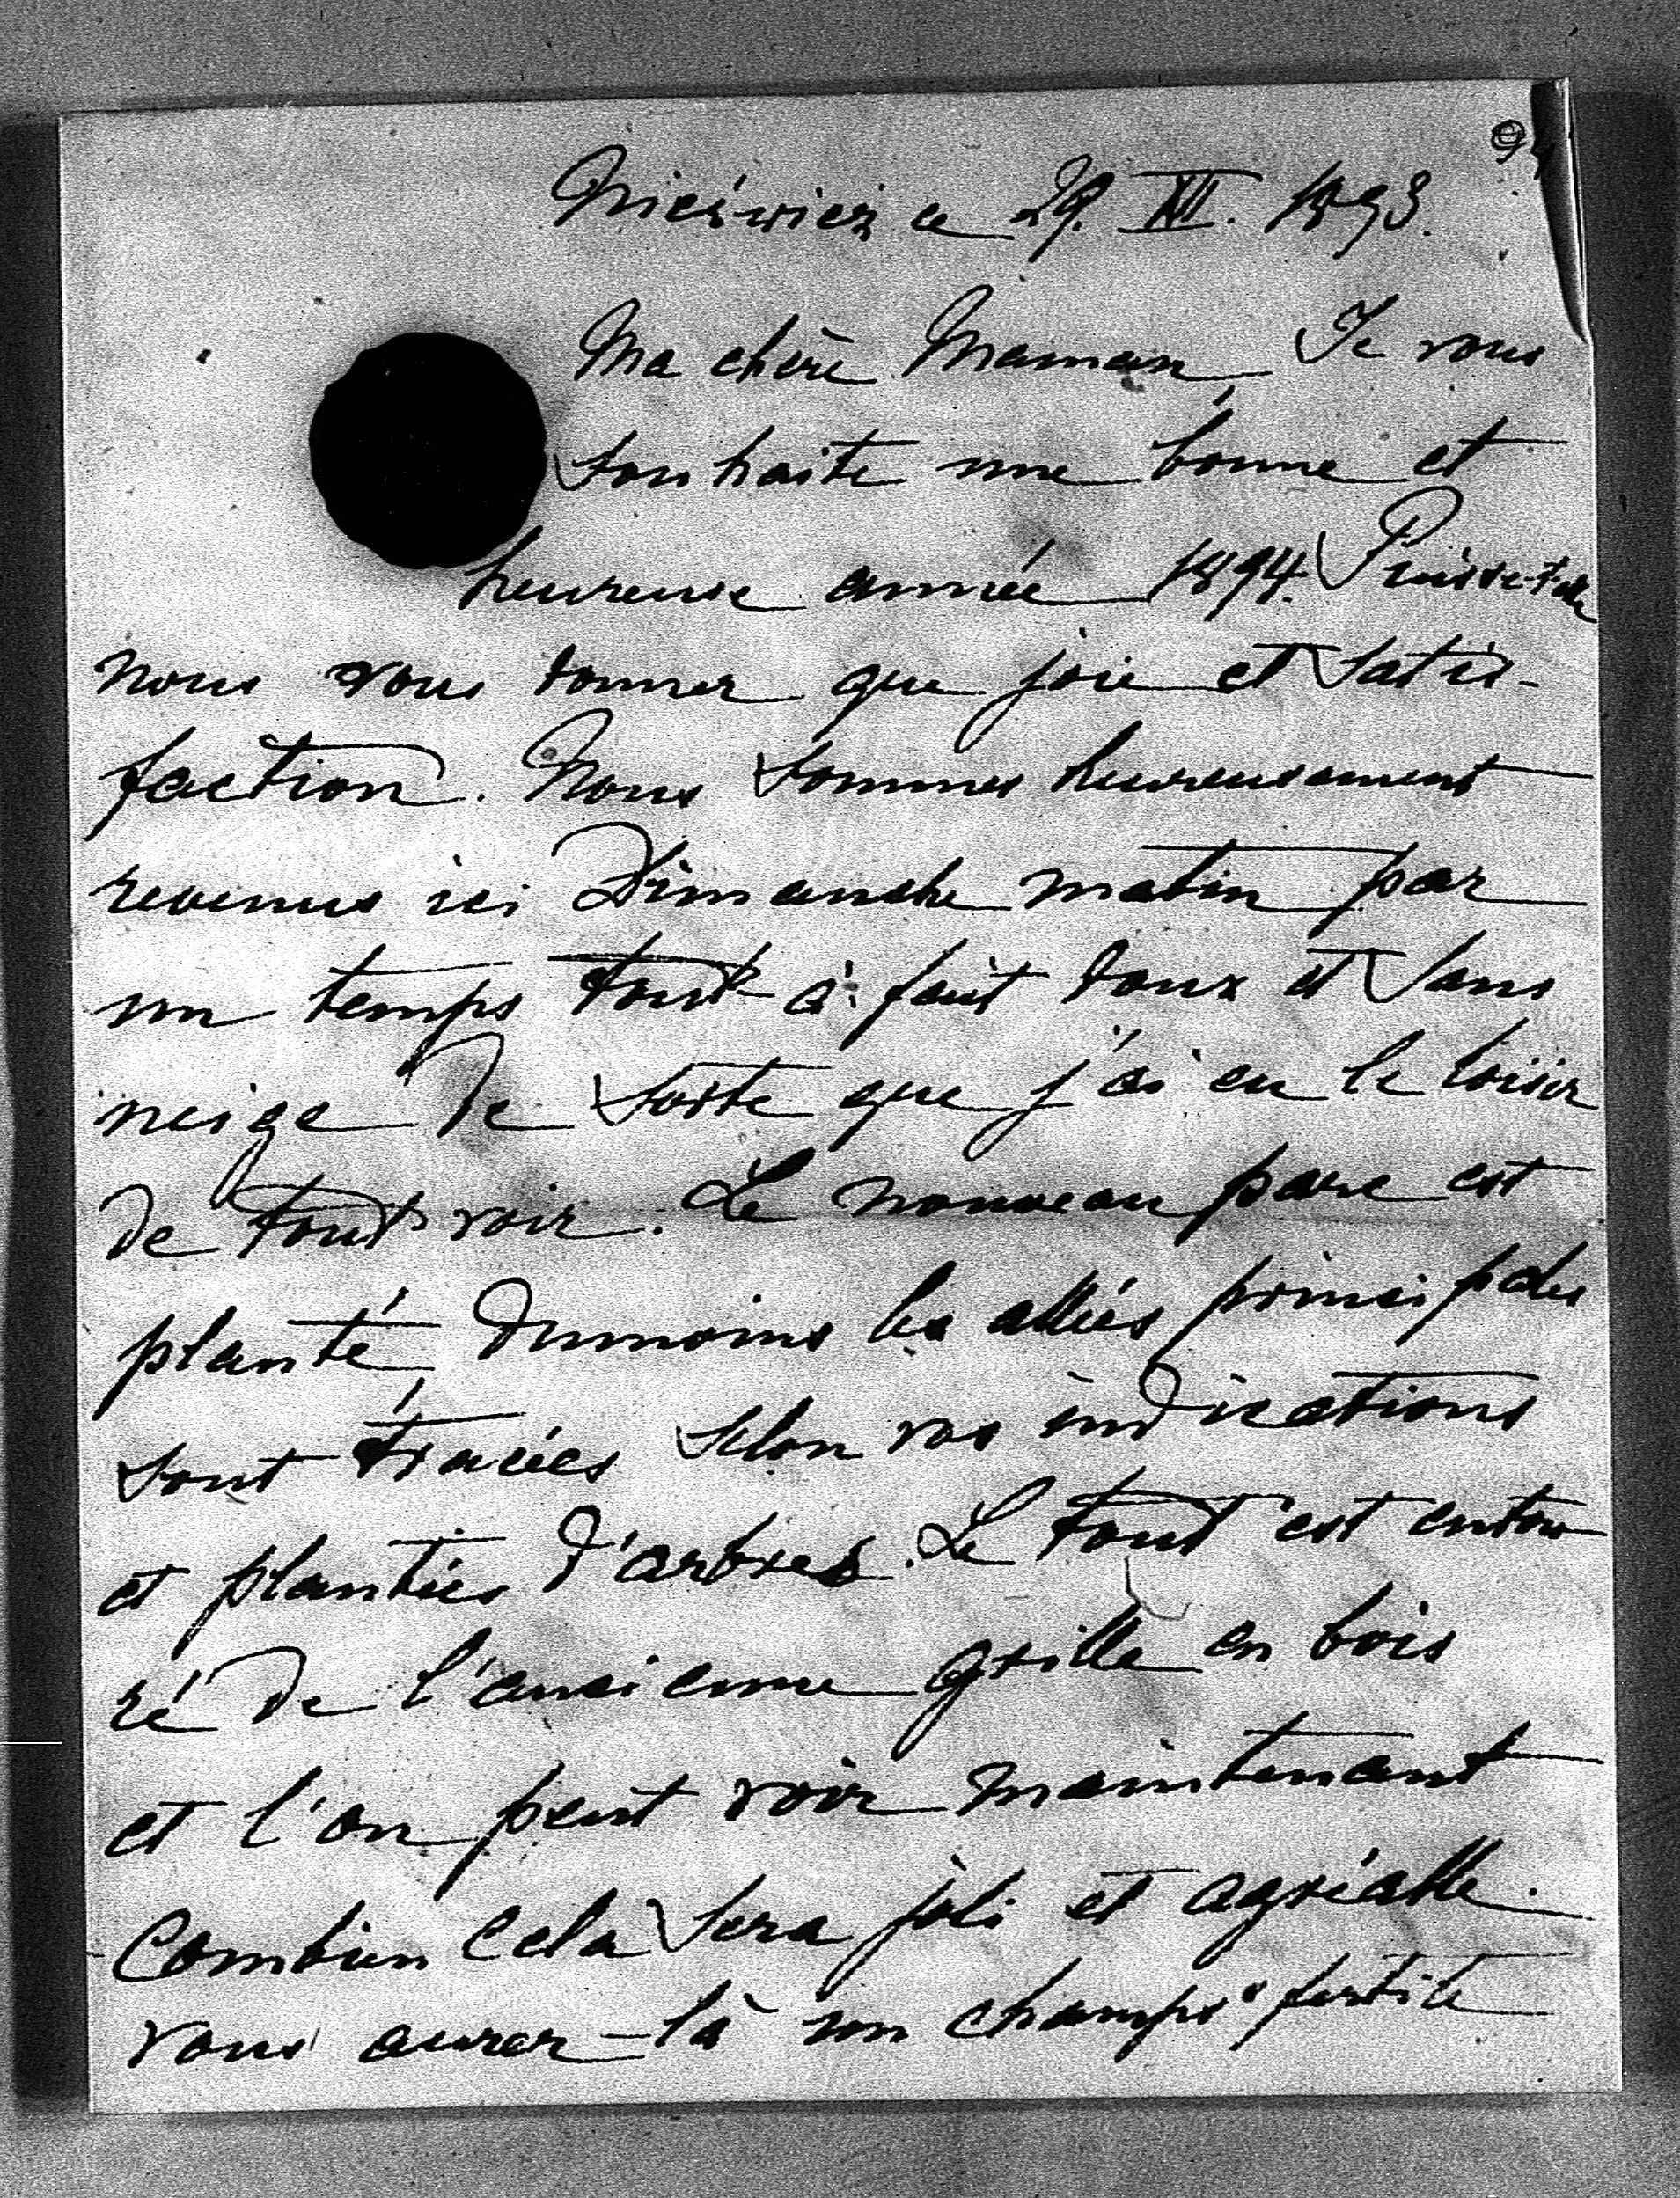 94
Nieświez ce 29. XII. 1893.
Ma chère Maman, Je vous
souhaite une bonne et
heureuse année 1894. Puisse-t-elle
nous vous donner que joie et satis-
faction. Nous sommes heureusement
revenus ici Dimanche matin par
un temps tout-à-fait doux et sans
neige de sorte que j'ai eu le loisir
de tout voir. Le nouveau parc est
planté, dumoins les allées principales
sont tracées selon vos indications
et plantées d'arbres. Le tout est entou
ré de l'ancienne grille en bois
et l'on peut voir maintenant
combien cela sera joli et agréable.
vous aurez là un champs fertile